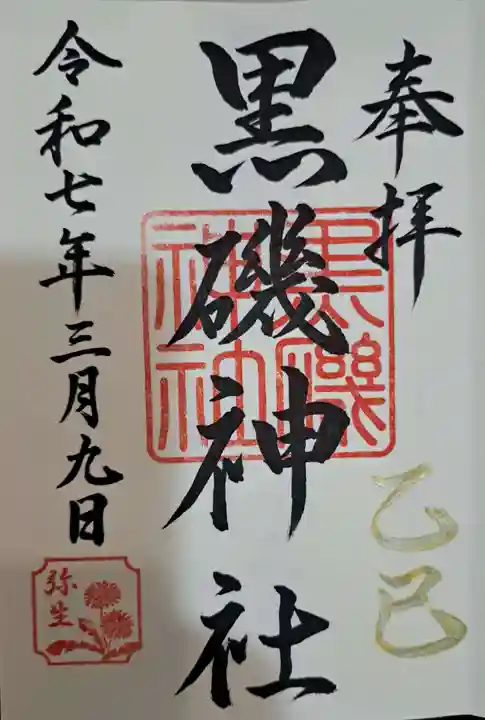 奉拝
乙巳
黒磯神社
黒磯
神社
令和七年三月九日
弥生